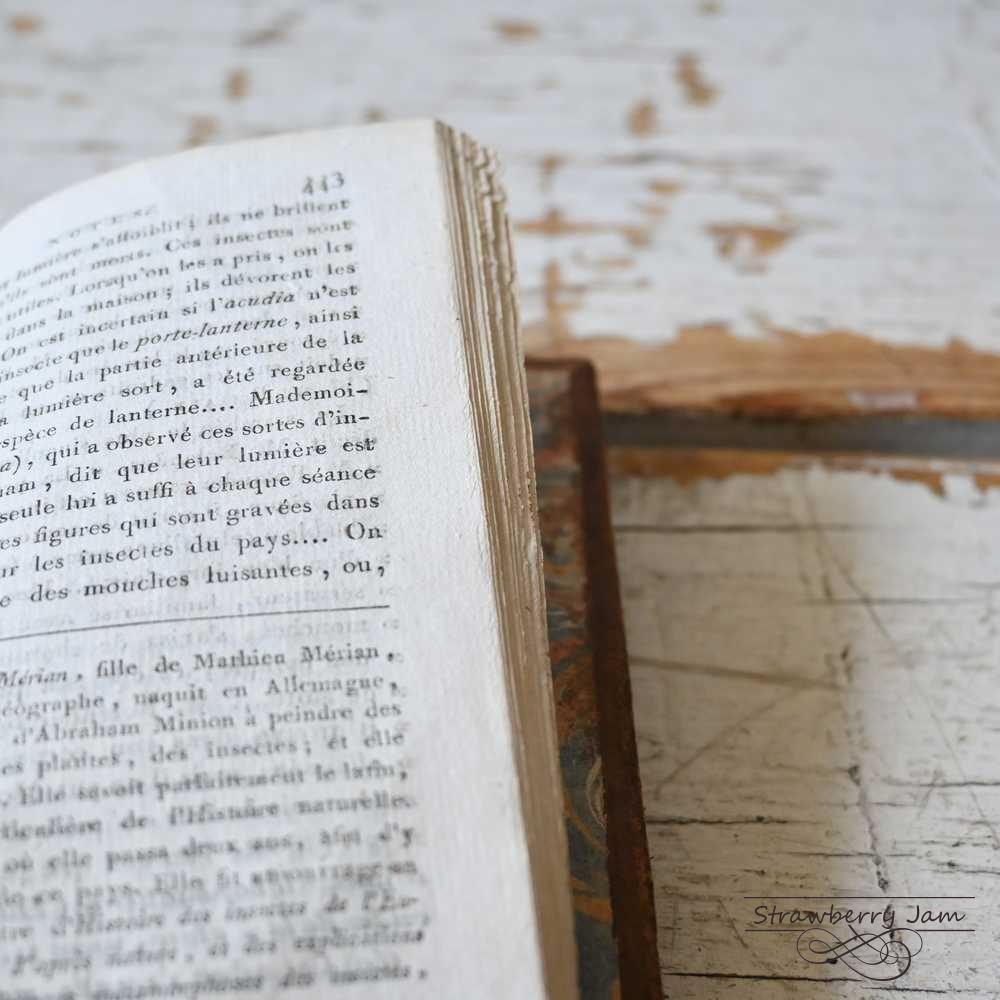 443
NOTES.
lumière s'affoiblit; ils ne brillent
s'ils sont morts. Ces insectes sont
utiles. Lorsqu'on les a pris, on les
dans la maison; ils dévorent les
On est incertain si l'acudia n'est
insecte que le porte-lanterne, ainsi
que la partie antérieure de la
lumiére sort, a été regardée
spèce de lanterne.... Mademoi-
a), qui a observé ces sortes d'in-
nam, dit que leur lumière est
seule lui a suffi à chaque séance
es figures qui sont gravées dans
ur les insectes du pays.... On
e des mouches luisantes, ou,
Mérian, fille de Mathieu Mérian,
éographe, naquit en Allemagne,
d'Abraham Minion à peindre des
es plantes, des insectes; et elle
Elle savoit parfaitement le latin,
ticulière de l'Histoire naturelle.
où elle passa deux ans, afin d'y
ce pays. Elle fit
Histoire des insectes de l'Eu-
d'après nature, et des explications
métamorphoses des insectes,
Strawberry Jam